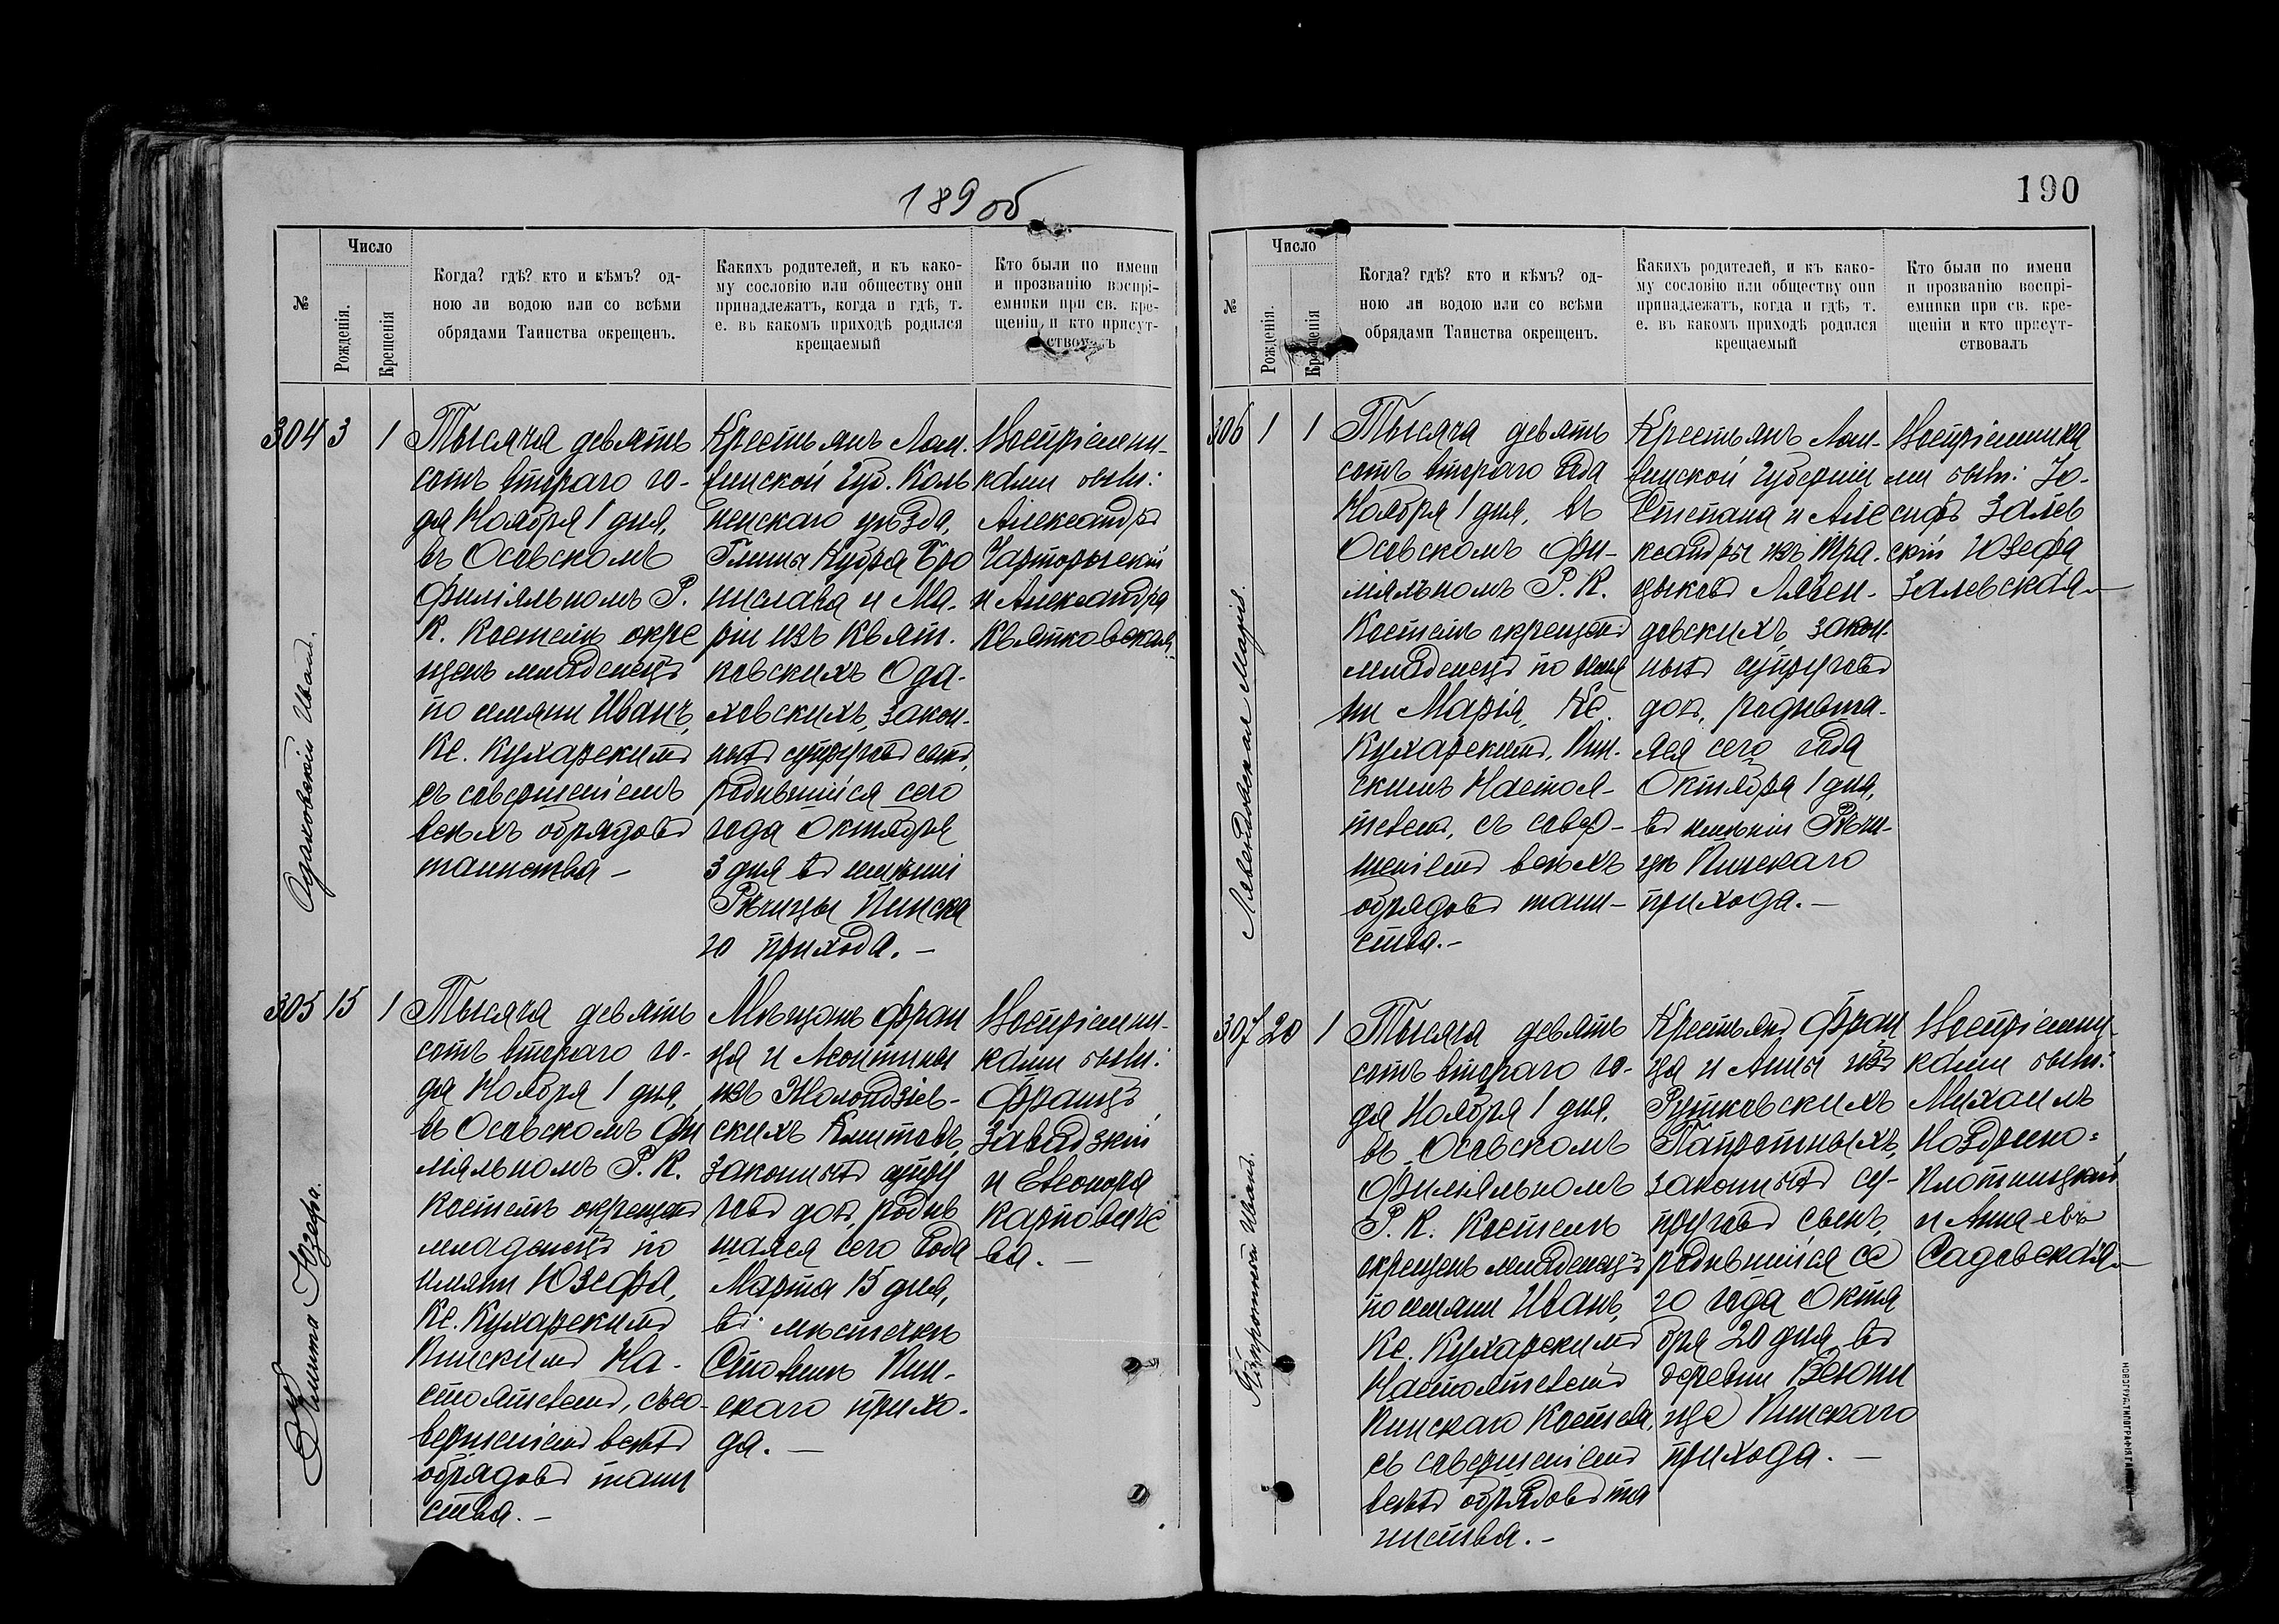 189 об
№
Число
Рожденія.
Крещенія
Когда? гдѣ? кто и кѣмъ? од-
ною ли водою или со всѣми
обрядами Таинства окрещенъ.
Какихъ родителей, и къ како-
му сословію или обществу они
принадлежатъ, когда и гдѣ, т.
е. въ какомъ приходѣ родился
крещаемый
Кто были по имени
и прозванію воспрі-
емники при св. кре-
щеніи и кто присут-
ствовалъ
304
3
1
Одаховскій Иванъ.
Тысяча девять
сотъ втораго го-
да Ноября 1 дня,
въ Осовскомъ
филіяльномъ Р.
К. костелѣ окре
щенъ младенецъ
по имяни Иванъ,
Кс. Кухарскимъ
съ совершеніемъ
всѣхъ обрядовъ
таинства –
Крестьянъ Лом.
винской губ. Коль
ненскаго уѣзда,
Гмины Кубра Бро
нислава и Ма-
ріи изъ Квят.
ковскихъ Ода-
ховскихъ, закон-
ныхъ супруговъ сынъ,
родившійся сего
года Октября
3 дня въ имѣніи
Рѣчицы Пинска
го прихода. –
Воспріемни-
ками были:
Александръ
Чарторыскій
и Александра
Квятковская
305
15
1
Климта Юзефа.
Тысяча девять
сотъ втораго го-
да Ноября 1 дня,
въ Осовскомъ фи
ліяльномъ Р. К.
костелѣ окрещенъ
младенецъ по
имяни Юзефа,
Кс. Кухарскимъ
Пинскимъ На-
стоятелемъ, съ со-
вершеніемъ всѣхъ
обрядовъ таин
ства. –
Мѣщанъ Фран
ца и Леонтины
изъ Жолондзіев-
скихъ Климтовъ,
законныхъ супру
говъ дочь, родив
шаяся сего года
Марта 15 дня,
въ мѣстечкѣ
Столинѣ Пин-
скаго прихо-
да. –
Воспріемни-
ками были:
Францъ
Завадзкій
и Елеонора
Карповиче
ва. –
190
№
Число
Рожденія.
Крещенія
Когда? гдѣ? кто и кѣмъ? од-
ною ли водою или со всѣми
обрядами Таинства окрещенъ.
Какихъ родителей, и къ како-
му сословію или обществу они
принадлежатъ, когда и гдѣ, т.
е. въ какомъ приходѣ родился
крещаемый
Кто были по имени
и прозванію воспрі-
емники при св. кре-
щеніи и кто присут-
ствовалъ
306
1
1
Лявендовская Марія.
Тысяча девять
сотъ втораго года
Ноября 1 дня, въ
Осовскомъ фи-
ліяльномъ Р. К.
Костелѣ окрещенъ
младенецъ по имя
ни Марія, Кс.
Кухарскимъ, Пин-
скимъ Настоя-
телемъ, съ совер-
шеніемъ всѣхъ
обрядовъ таин-
ства. –
Крестьянъ Лом-
винской губерніи
Степана и Але
ксандры изъ Тра-
цыковъ Лявен-
довскихъ, закон-
ныхъ супруговъ
дочь, родивша-
яся сего года
Октября 1 дня,
въ имѣніи Рѣчи-
цѣ Пинскаго
прихода. –
Воспріемника
ми были: Іо-
сифъ Залев
скій Юзефа
Залевская –
307
20
1
Папротный Иванъ.
Тысяча девять
сотъ втораго го-
да Ноября 1 дня,
въ Осовскомъ
филіяльномъ
Р. К. Костелѣ
окрещенъ младенецъ
по имяни Иванъ,
Кс. Кухарскимъ
Настоятелемъ
Пинскаго Костела,
съ совершеніемъ
всѣхъ обрядовъ та
инства. –
Крестьянъ Фран
ца и Анны изъ
Рутковскихъ
Папротныхъ,
законныхъ су-
пруговъ сынъ,
родившійся се
го года Октя
бря 20 дня, въ
деревни
Пинскаго
прихода. –
Воспріемни-
ками были:
Михаилъ
Ноздрино-
Плотницкій
и Анна
Садовская –